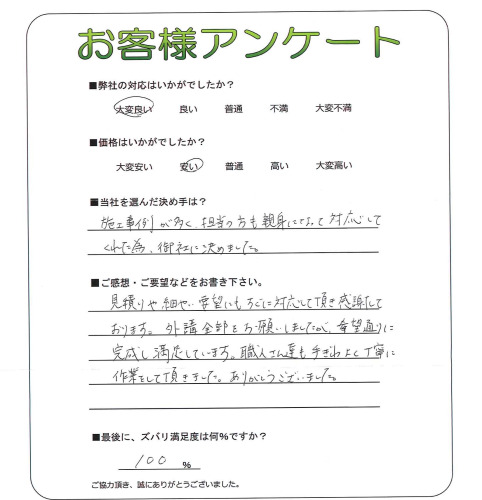 お客様アンケート
■弊社の対応はいかがでしたか？
大変良い 良い 普通 不満 大変不満
■価格はいかがでしたか？
大変安い 安い 普通 高い 大変高い
■当社を選んだ決め手は？
施工事例が多く、担当の方も親身になって対応して
くれた為、御社に決めました。
■ご感想・ご要望などをお書き下さい。
見積りや細かい要望にもすぐに対応して頂き感謝して
おります。外構全部をお願いしましたが、希望通りに
完成し満足しています。職人さん達も手ぎわよく丁寧に
作業をして頂きました。ありがとうございました。
■最後に、ズバリ満足度は何％ですか？
100 ％
ご協力頂き、誠にありがとうございました。